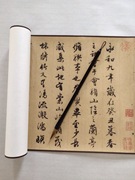 永和九年歲在癸丑暮春
之初會于會稽山陰之蘭亭
脩稧事也羣賢畢至少長
咸集此地有崇山峻領茂
林脩竹又有清流激湍映